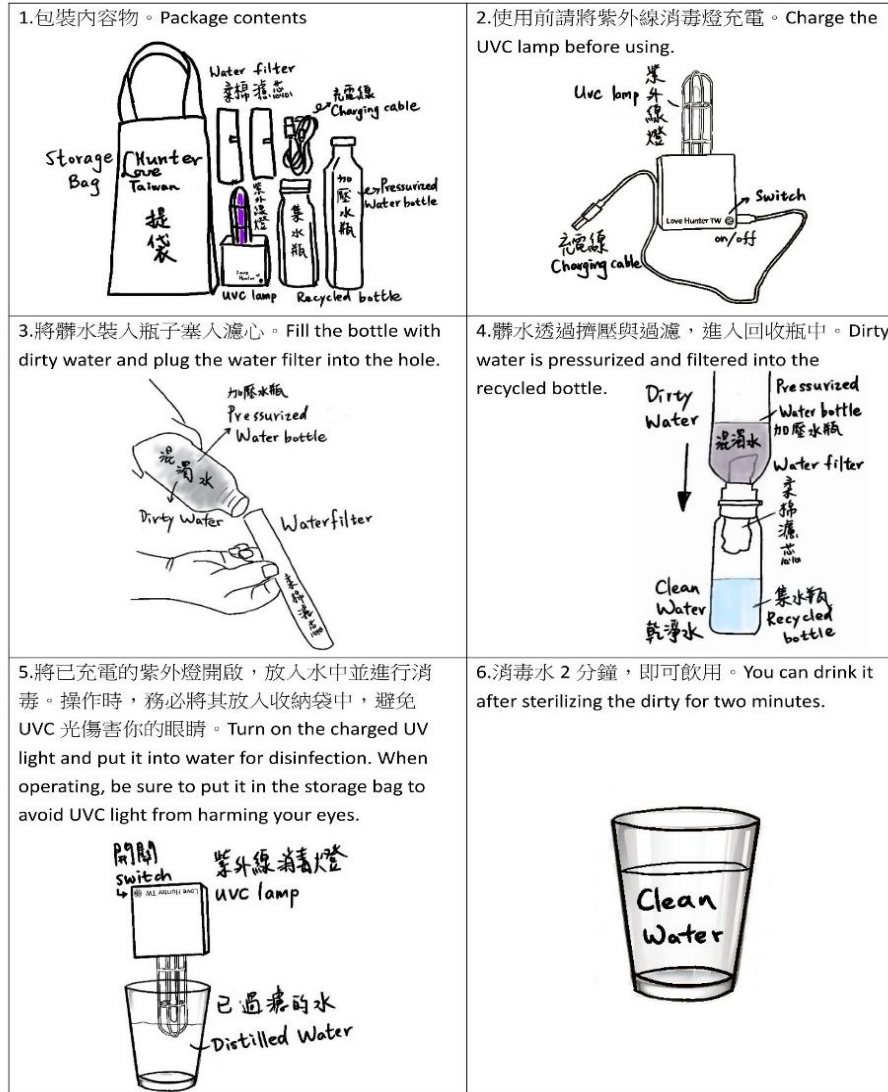 1.包裝內容物。Package contents
Water filter
柔棉濾芯
充電線
Charging cable
Storage
Bag
Hunter
Love
Taiwan
提袋
紫外線燈
集水瓶
加壓水瓶
Pressurized
Water bottle
Love
Hunter
UVC lamp
Recycled bottle
2.使用前請將紫外線消毒燈充電。Charge the
UVC lamp before using.
Uvc lamp
紫外線燈
Switch
Love Hunter TW
on/off
充電線
Charging cable
3.將髒水裝入瓶子塞入濾心。Fill the bottle with
dirty water and plug the water filter into the hole.
加壓水瓶
Pressurized
Water bottle
混濁水
Dirty Water
Waterfilter
柔棉濾芯
4.髒水透過擠壓與過濾，進入回收瓶中。Dirty
water is pressurized and filtered into the
recycled bottle.
Dirty
Water
Pressurized
Water bottle
加壓水瓶
混濁水
Water filter
柔棉濾芯
Clean
Water
乾淨水
集水瓶
Recycled
bottle
5.將已充電的紫外燈開啟，放入水中並進行消
毒。操作時，務必將其放入收納袋中，避免
UVC 光傷害你的眼睛。Turn on the charged UV
light and put it into water for disinfection. When
operating, be sure to put it in the storage bag to
avoid UVC light from harming your eyes.
開關
switch
紫外線消毒燈
UVC lamp
Love Hunter TW
已過濾的水
Distilled Water
6.消毒水 2 分鐘，即可飲用。You can drink it
after sterilizing the dirty for two minutes.
Clean
Water